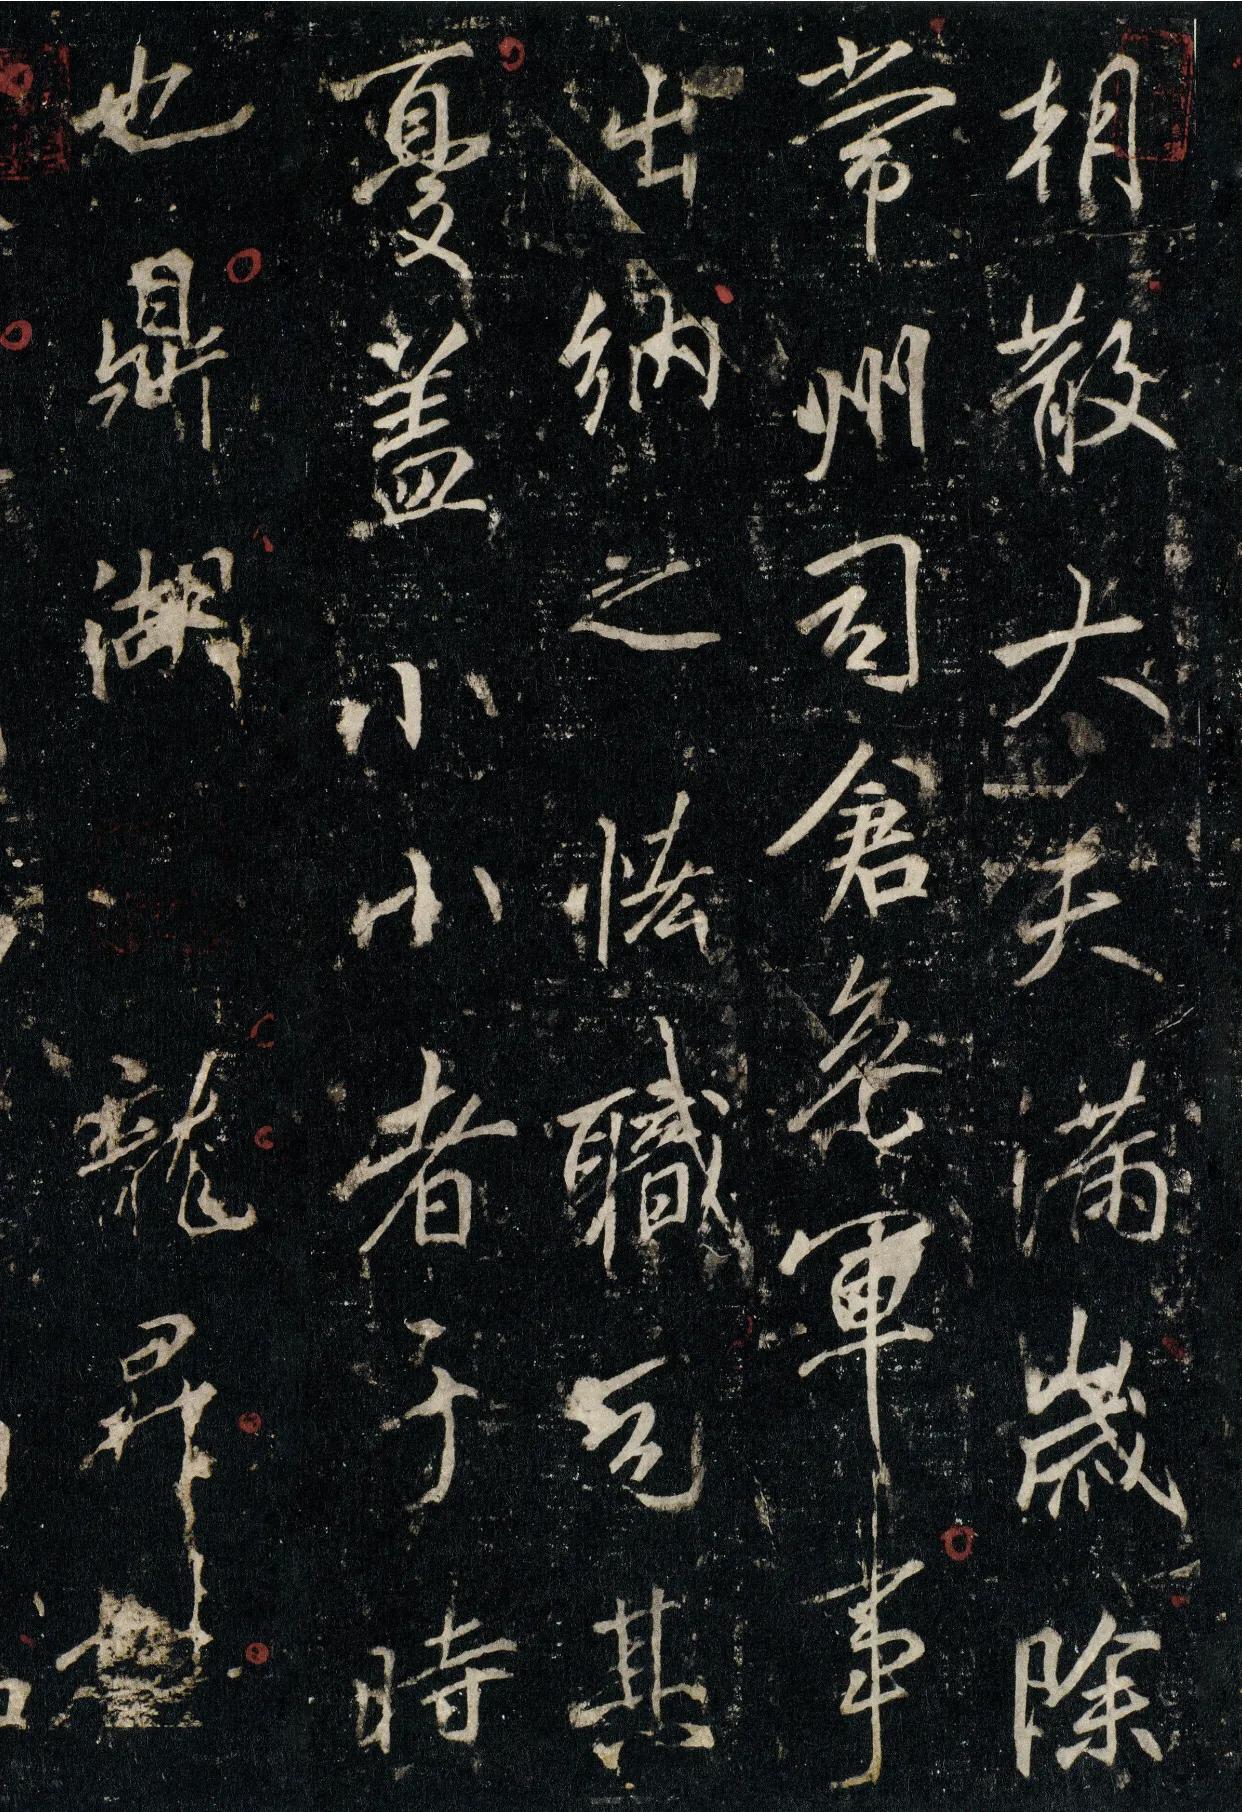 朝散大夫滿歲除
常州司倉參軍事
出納之恡職司其
憂蓋小小者于時
也鼎湖龍昇